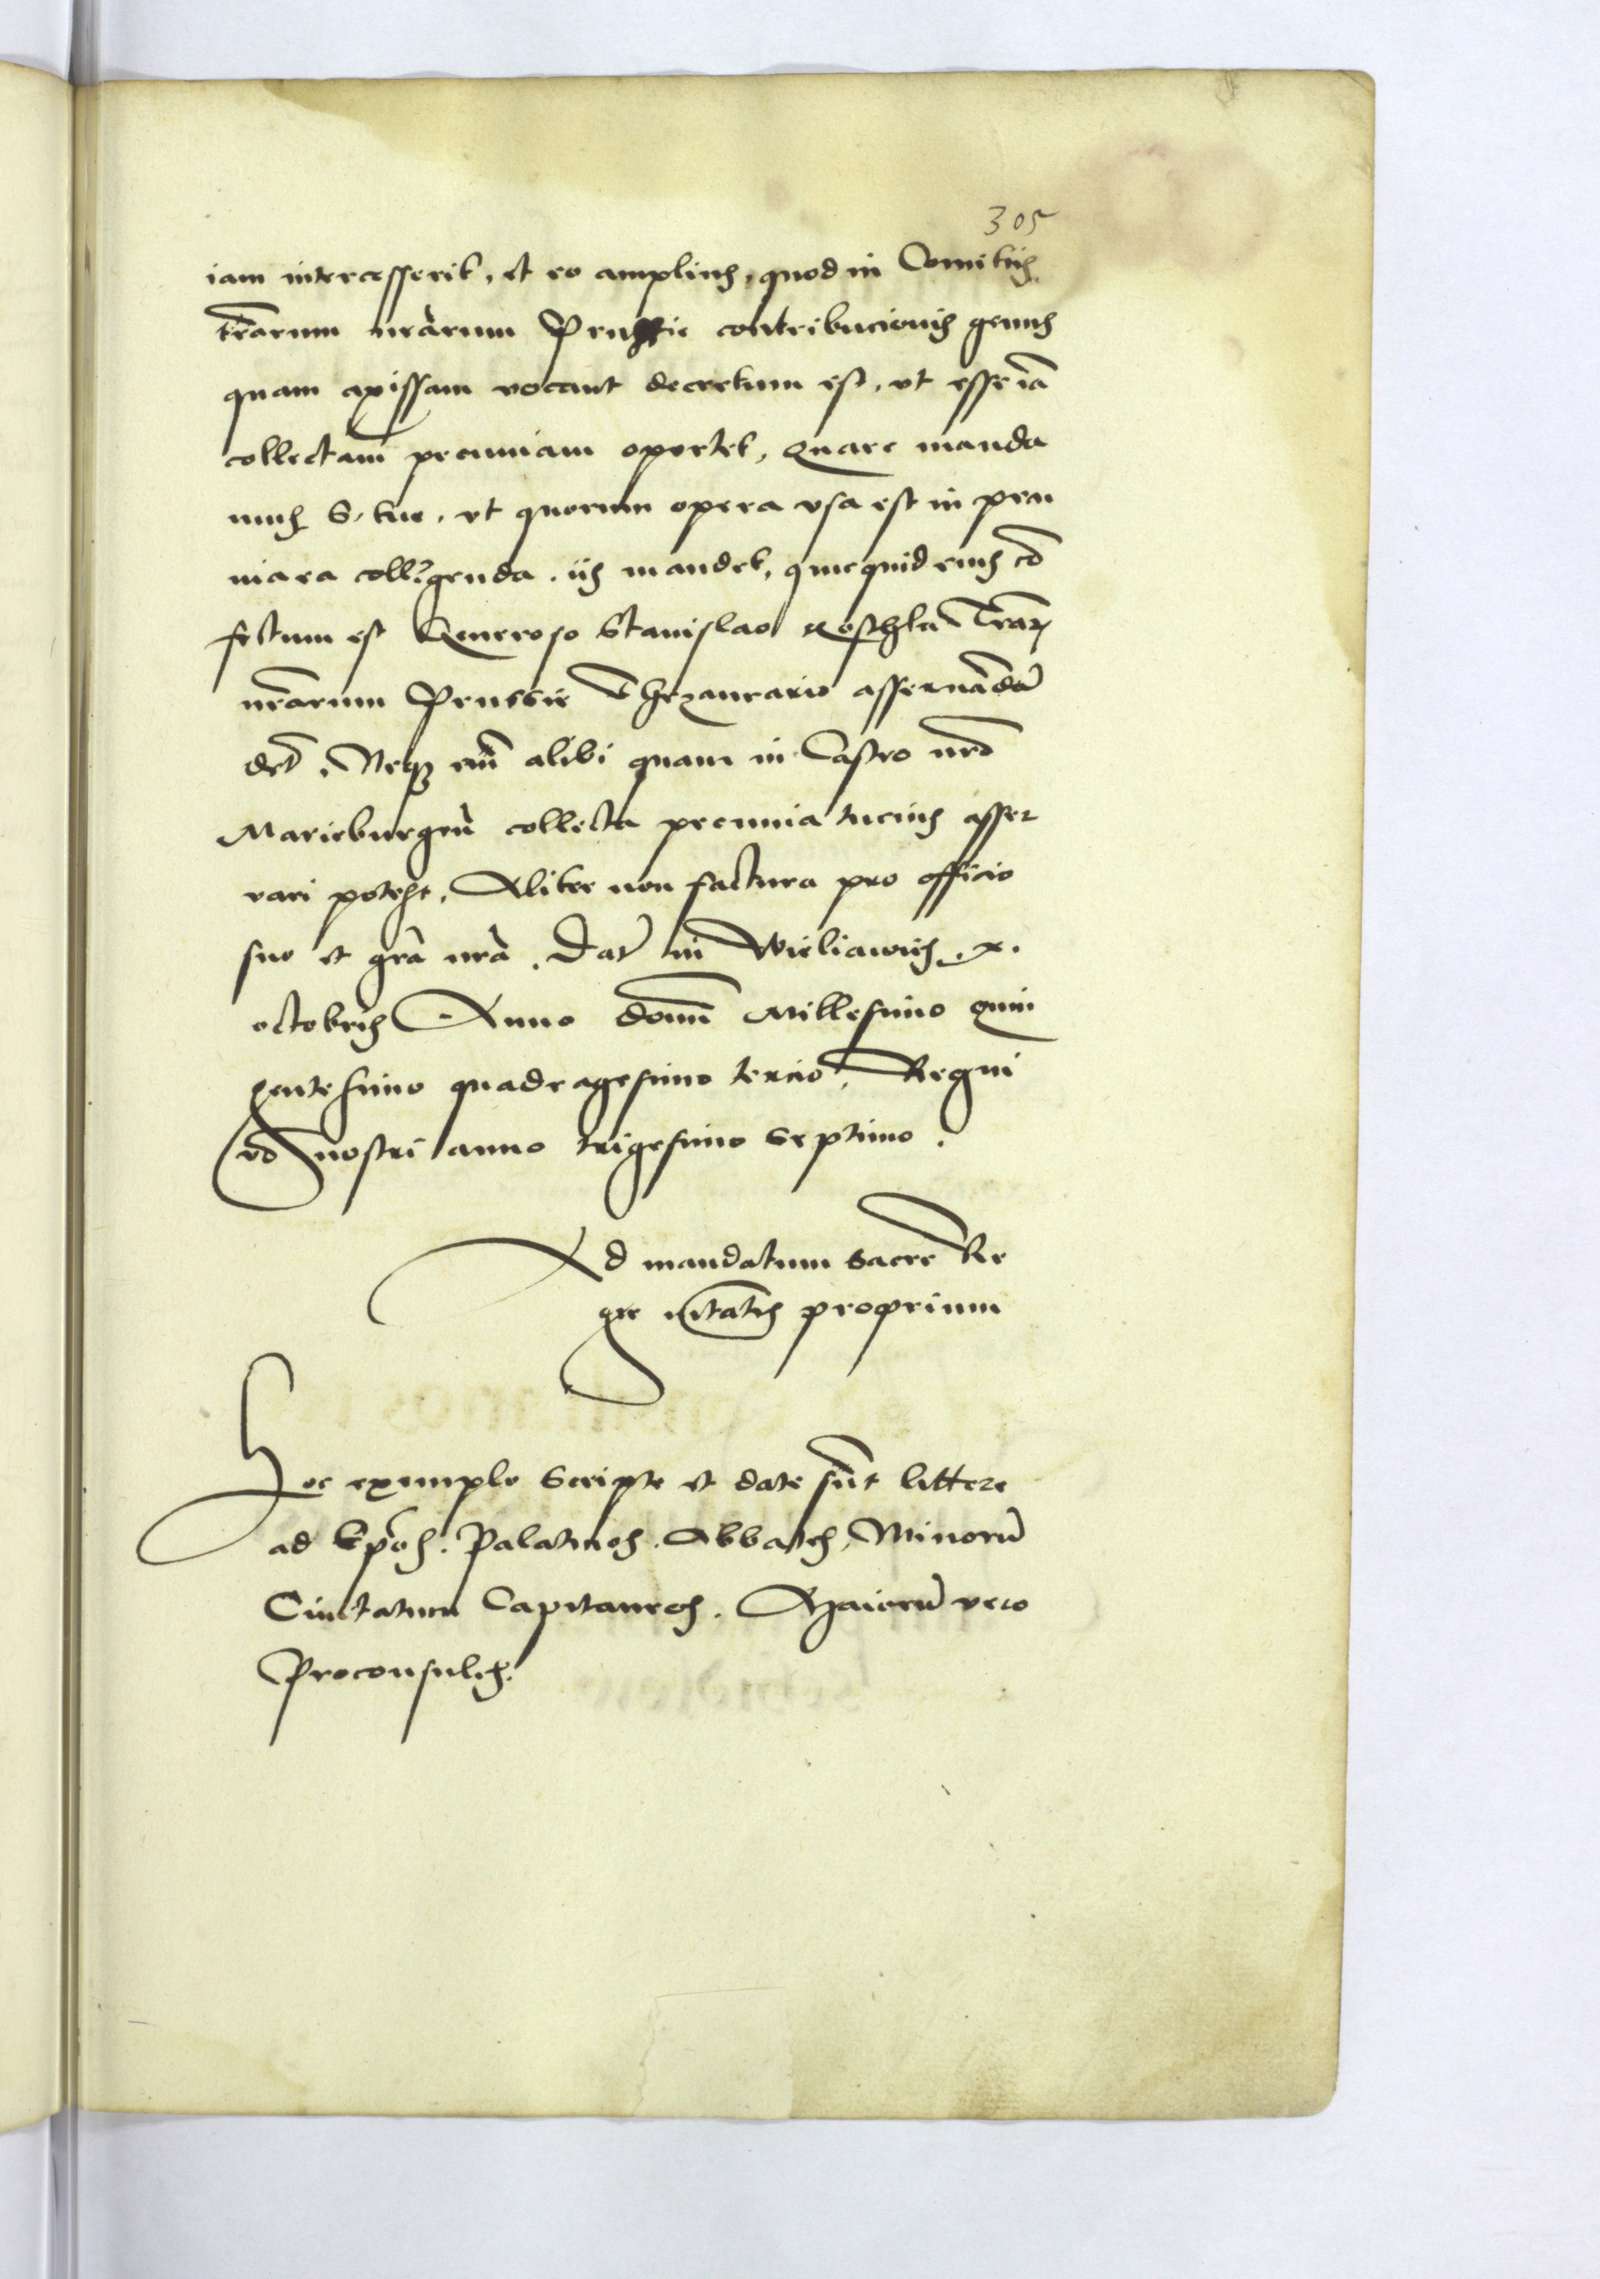 305
iam intercesserit, et eo amplius, quod in Comitiis
terrarum nrarum Prussie contribucionis genus
quam axissam vocant decretum est, vt esse iã
collectam pecuniam oportet, Quare manda
mus S. tue, vt quorum opera vsa est in pecu
nia ea colligenda, iis mandet, quicquid eius cõ
fectum est Generoso Stanislao Koschka Trarz
nrarum Prussie Thezaurario asseruandũ
det. Neqz enĩ alibi quam in Castro nrõ
Marieburgeñ collecta pecunia tucius asser
vari potest, Aliter non factura pro officio
suo et grã nrã. Dat in Wieliawich. x.
octobris Anno domĩ Millesimo quin
gentesimo quadragesimo tercio, Regni
vo nostri anno trigesimo septimo.
Ad mandatum sacre Re
gie mtatis proprium
Hoc exemplo scripte et date sũt littere
ad Epõs. Palatinos. Abbates, Minorũ
Ciuitatum Capitaneos. Maiorũ vero
Proconsules.